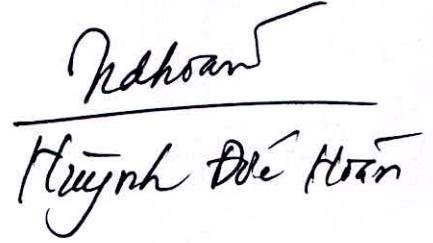 Hdhoàn
Huỳnh Đức Hoàn